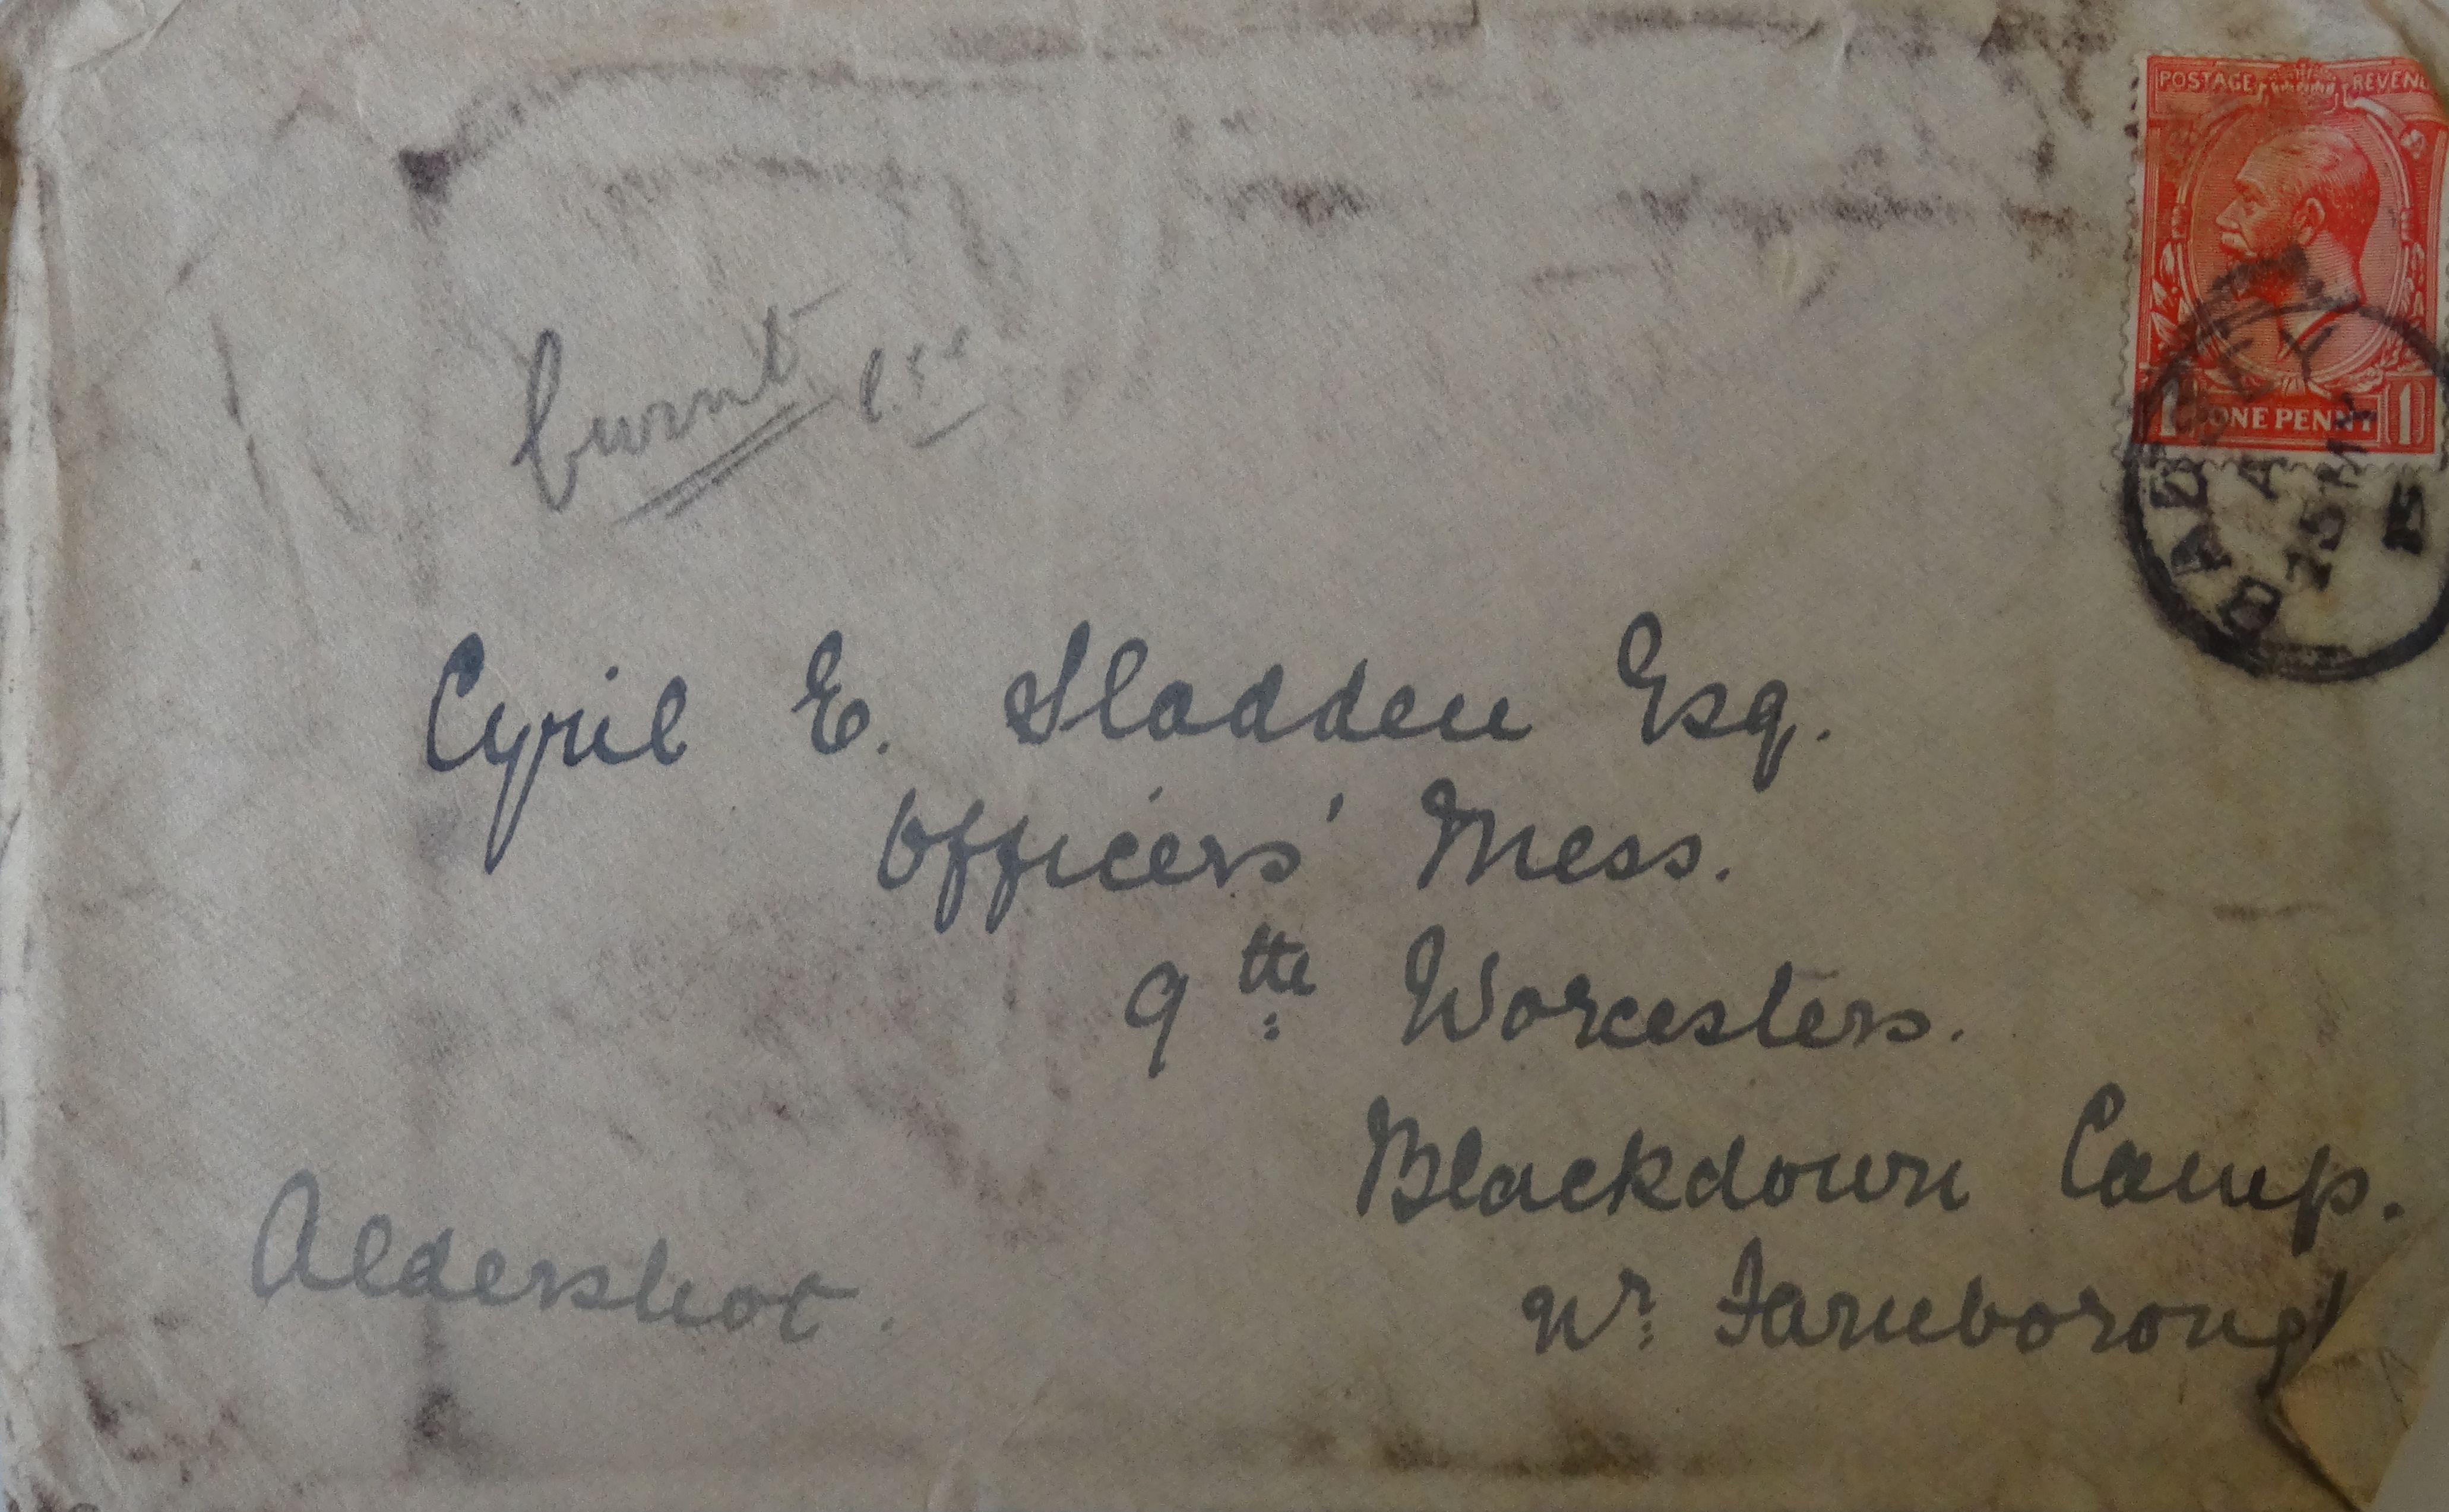 POSTAGE REVENUE
1 ONE PENNY 1
BADSEY
A
25 MY
15
burnt
Cyril E. Sladden Esq.
Officers' Mess.
9th Worcesters.
Blackdown Camp.
Nr. Farnborough
Aldershot.